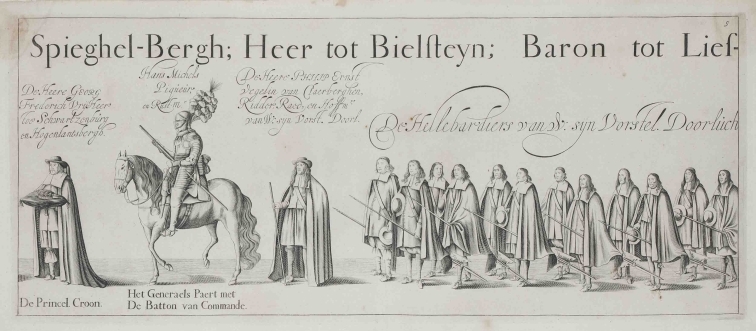 5
Spieghel-Bergh; Heer tot Bielsteyn; Baron tot Lief-
De Heere Grever
Frederich Vry Heer
tot Schwartzenburg
en Hogenlantsbergh.
Hans Michels
Piqueur
en
De Heere Philip Ernst
Vegelin van Claerbergen,
Ridder Raet en Hoffm.
van W. syn Vorst. Doorl.
De Hellebardiers van W. syn Vorstel. Doorluch
De Princel. Croon.
Het Generaels Paert met
De Batton van Commande.